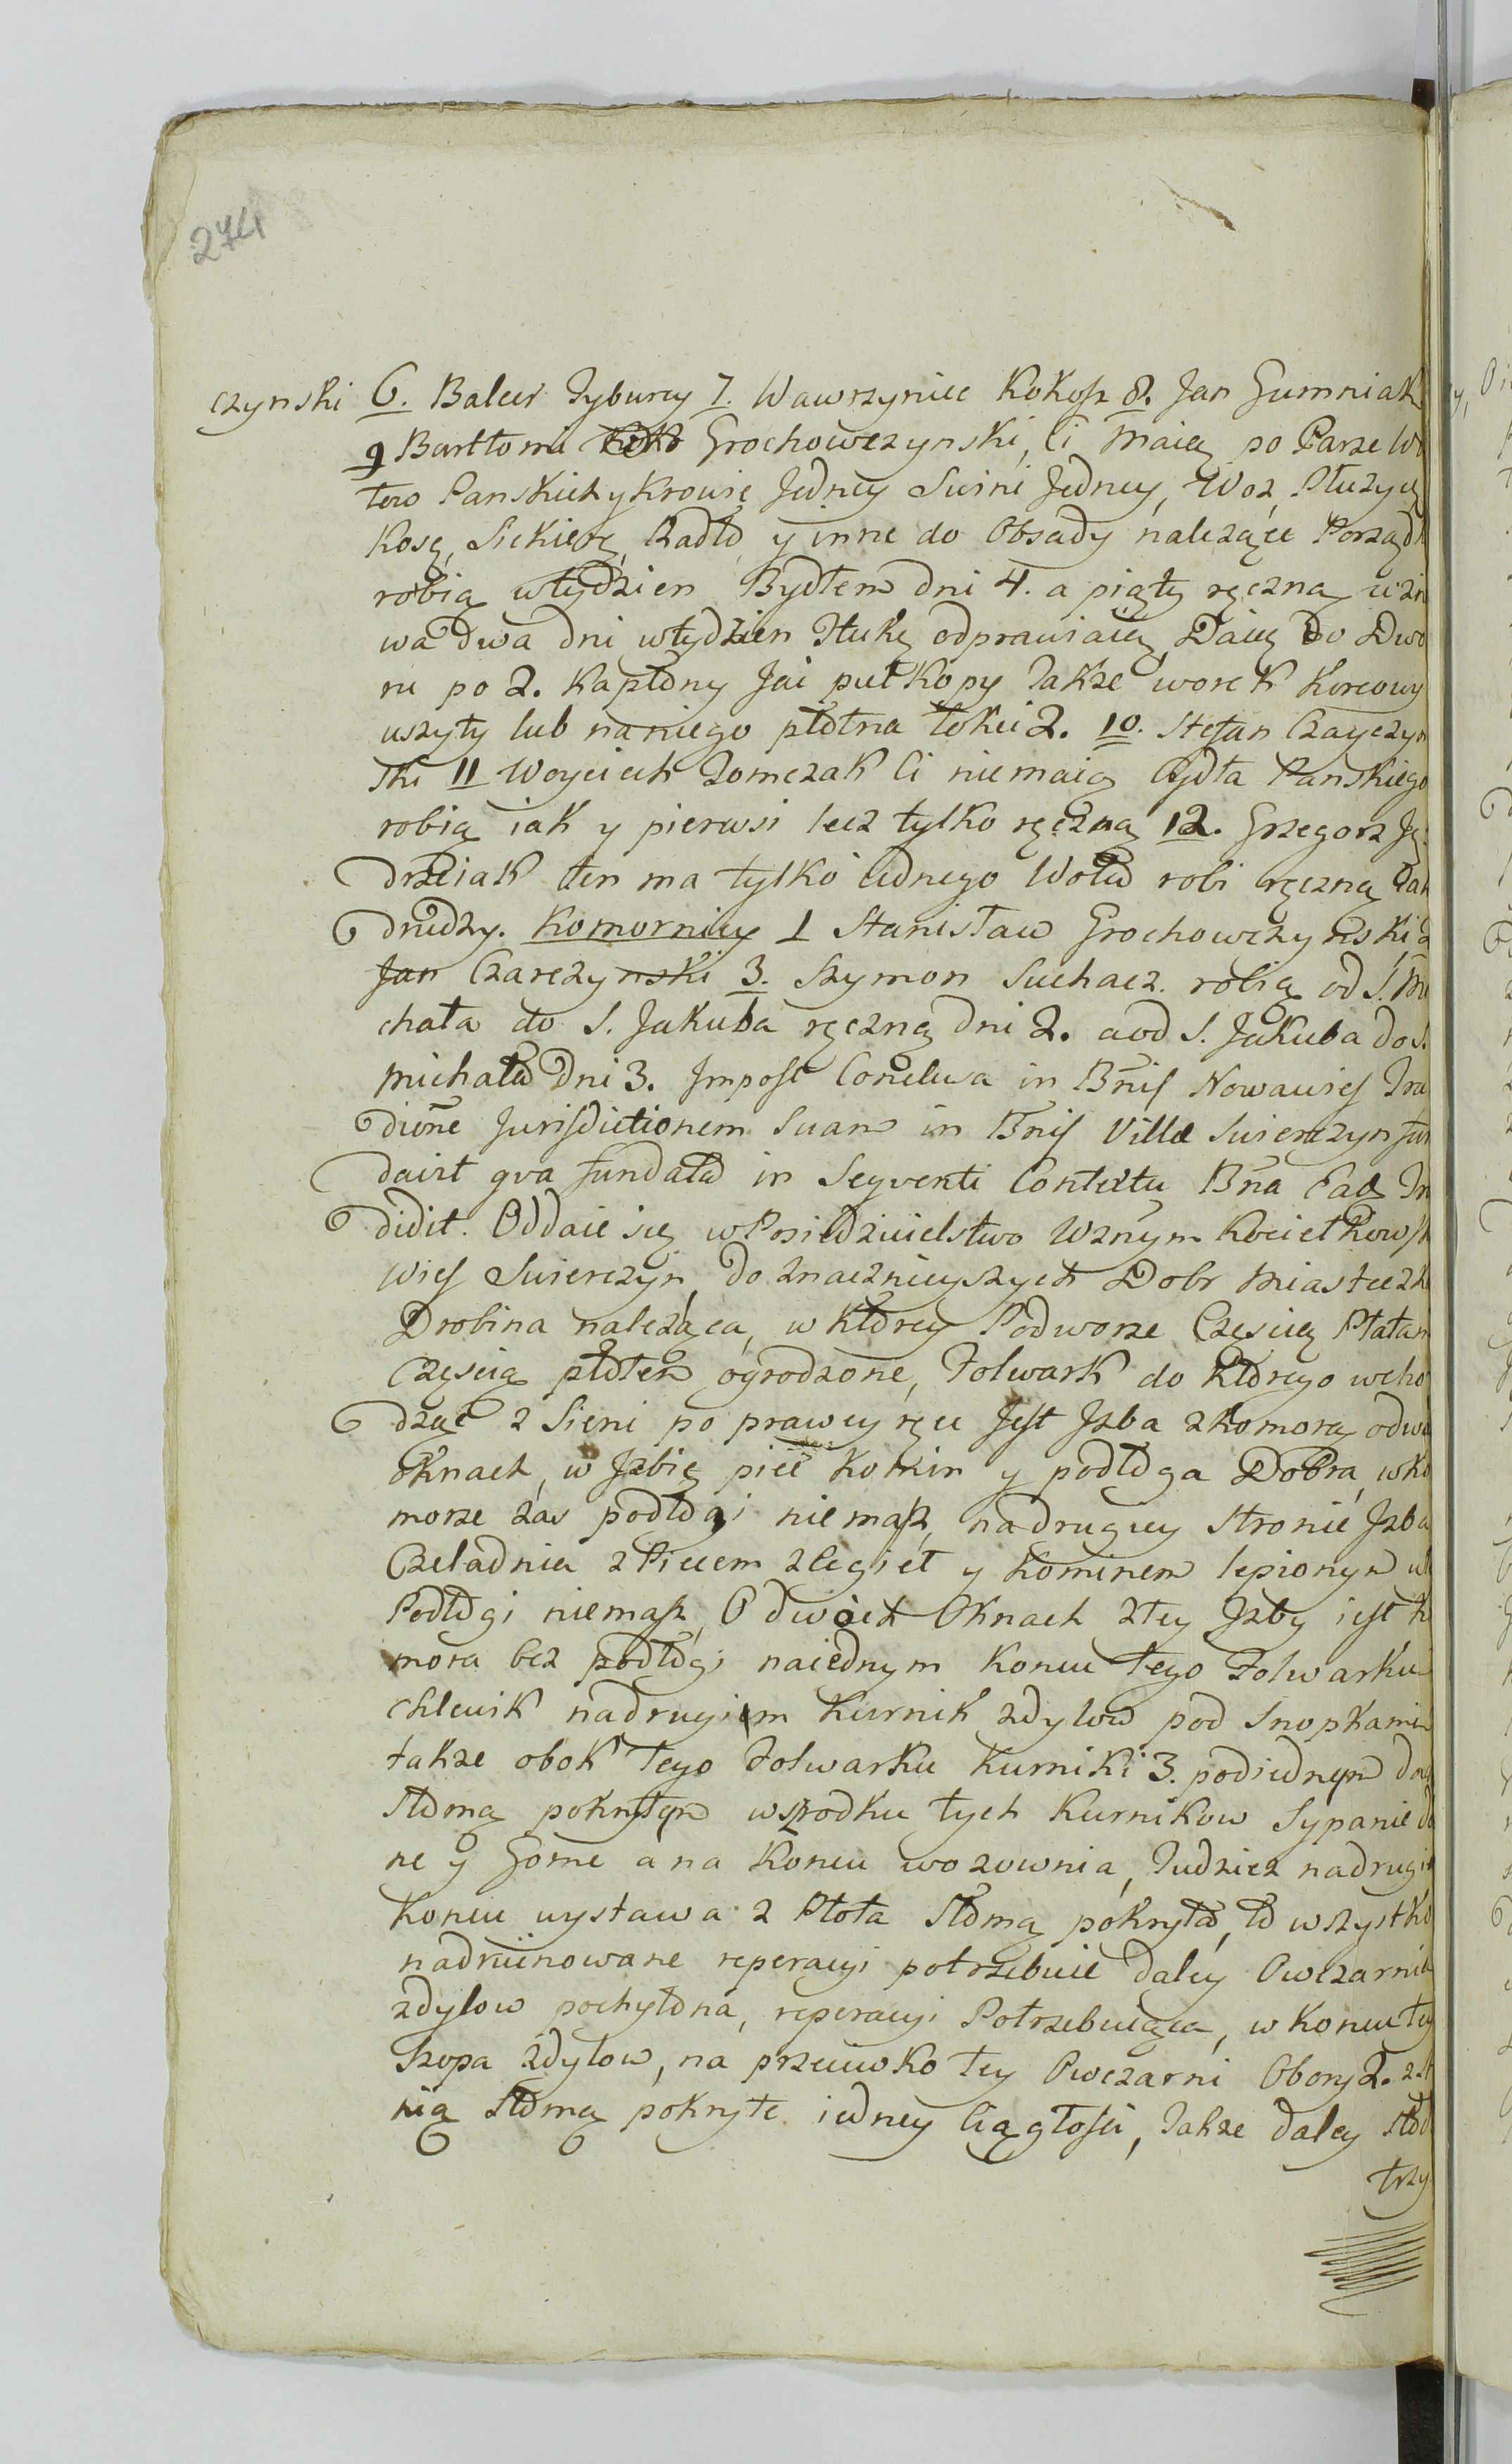 274
czynski 6. Balcer Tyburcy 7. Wawrzyniec Kokosz 8. Jan Gumniak
9 Bartłomi Grochowczynski, Ci maią po Parze Wo
łow Panskich y Krowie Jedney Swini Jedney, Woz, Płużycę
Kosę, Siekierę, Radło y inne do Obsady należące Porządk
robią wtydzien Bydłem dni 4. a piąty ręczną wżni
wa dwa dni wtydzien Tłukę odprawiaią, Daią do Dwo
ru po 2. Kapłony Jai puł Kopy Takze worek Korcowy
uszyty lub naniego płotna łokci 2. 10. Stefan Czayczyn
ski 11 Woyciech Tomczak Ci niemaią Bydła Panskiego
robią iak y pierwsi lecz tylko ręczną 12. Grzegorz Ję
drzeiak ten ma tylko iednego Woła robi ręczną iak
drudzy. Komornicy 1 Stanisław Grochowczynski 2
Jan Czarczynski 3. Szymon Suchacz. robią od S. Mi
chała do S. Jakuba ręczną dni 2. a od S. Jakuba do S.
Michała Dni 3. Impost Conclusa in Bnis Nowawies Tra
ditne Jurisdictionem Suam in Bnis Villæ Swierczyn fun
davit qva fundata in Seqventi Contextu Bna Ead Tra
didit. Oddaie się w Posiedzicielstwo Wznym Kociełkowsk
Wies Swierczyn, do znacznieyszych Dobr Miasteczka
Drobina należąca, w Ktorey Podworze Częscią Płotam
Częscią płotem ogrodzone, Folwark do Ktorego wcho
dząc z Sieni po prawey ręce Jest Jzba z Komorą o dwu
oknach, w Jzbie piec Komin y podłoga Dobra, w Ko
morze zas podłogi niemasz, nadrugiey stronie Jzba
Czeladnia z Piecem z Cegieł y Kominem lepionym
Podłogi niemasz, O dwoch Oknach z tey Jzby iest Ko
mora bez podłogi na iednym Koncu tego Folwarku
chlewik nadrugiem Kurnik z dylow pod Snopkami
takze obok tego Folwarku Kurniki 3. pod iednym dach
Słomą pokrytym wszrodku tych Kurnikow Sypanie do
ne y Gorne a na Koncu wozownia, Tudziez nadrugim
Koncu wystawa z Płota Słomą pokryta, to wszystko
nadruinowane reperacyi potrzebuie daley Owczarnia
z dylow pochylona, reperacyi Potrzebuiąca, w Koncu tey
Szopa z dylow, na przeciwko tey Owczarni Obory 2. z st
nią Słomą pokryte iedney Ciągłosci, Takze daley Stod
trzy